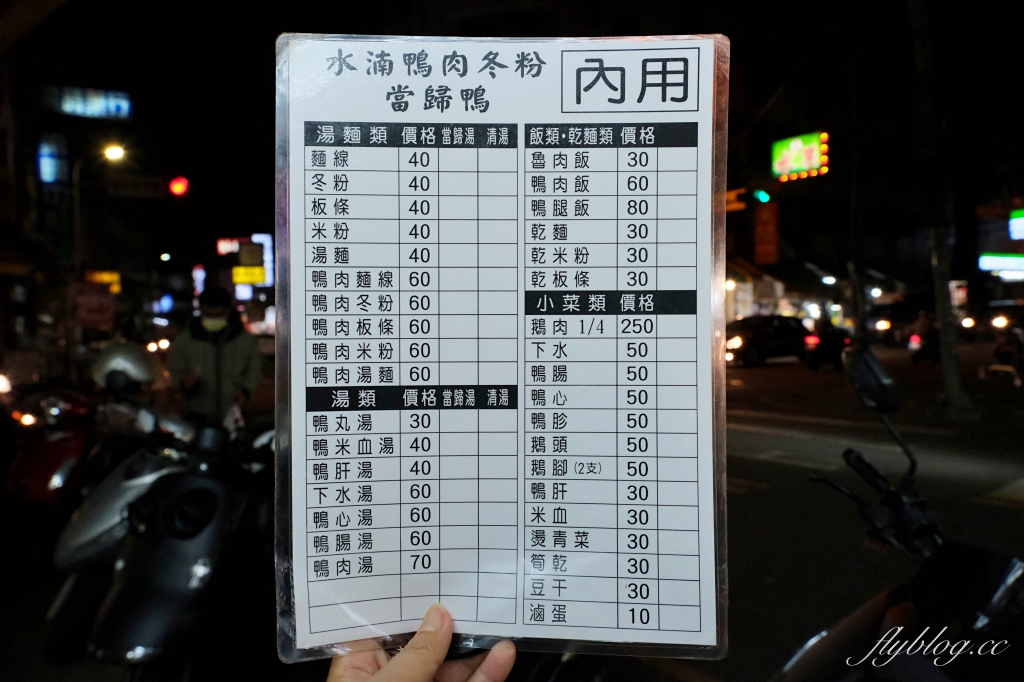 水湳鴨肉冬粉
當歸鴨
內用
湯麵類 價格 當歸湯 清湯
麵線 40
冬粉 40
板條 40
米粉 40
湯麵 40
鴨肉麵線 60
鴨肉冬粉 60
鴨肉板條 60
鴨肉米粉 60
鴨肉湯麵 60
湯類 價格 當歸湯 清湯
鴨丸湯 30
鴨米血湯 40
鴨肝湯 40
下水湯 60
鴨心湯 60
鴨腸湯 60
鴨肉湯 70
飯類·乾麵類 價格
魯肉飯 30
鴨肉飯 60
鴨腿飯 80
乾麵 30
乾米粉 30
乾板條 30
小菜類 價格
鵝肉 1/4 250
下水 50
鴨腸 50
鴨心 50
鴨胗 50
鵝頭 50
鵝腳(2支) 50
鴨肝 30
米血 30
燙青菜 30
筍乾 30
豆干 30
滷蛋 10
flyblog.cc